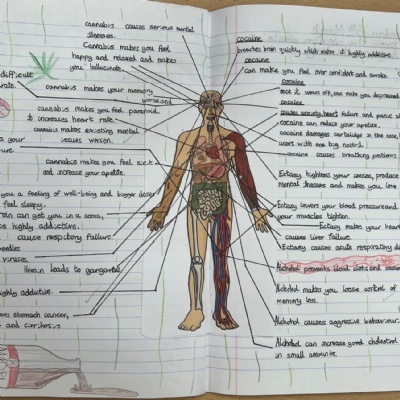 cannabis causes serious mental
illnesses.
Cannabis makes you feel
happy and relaxed and makes
you hallucinate.
difficult
rate.
cannabis makes your memory
worse and
cannabis makes you feel paranoid.
It increases heart rate.
cannabis makes existing mental
issues worsen.
cannabis makes you feel sick
and increase your appetite.
you a feeling of well-being and bigger doses
feel sleepy.
can get you in a coma,
highly addictive.
cause respitory failure.
needles
viruses.
Heroin leads to gangarene
highly addictive.
stomach cancer,
and cirrhosis
cocaine
breaches brain quickly which makes it highly addictive.
cocaine
can make you feel over confident and awake.
cocaine
once it wears off, can make you depressed
cocaine
causes heart failure and panic
cocaine can reduce your apetite.
cocaine damages cartilidge in the nose,
users with one big nostril.
cocaine causes breathing problems
Ectasy hightens your senses, produce
mental illnesses and makes you love
Ectasy lowers your blood pressure and
your muscles tighten.
Ectasy makes your heart
causes liver failure.
Ectasy causes acute respiratory
Alcohol prevents blood clots and
Alcohol makes you loose control of
memory loss.
Alcohol causes aggressive behaviour.
Alcohol can increase good cholestrol
in small amounts.